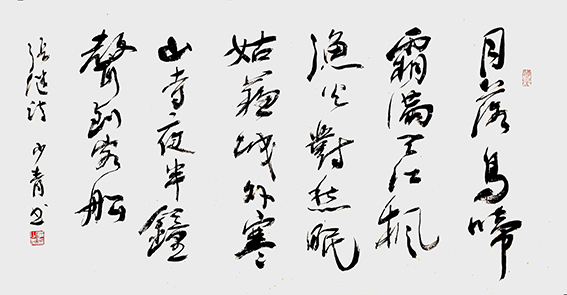 月落烏啼
霜滿天江楓
漁火對愁眠
姑蘇城外寒
山寺夜半鐘
聲到客船
張繼詩 少青书